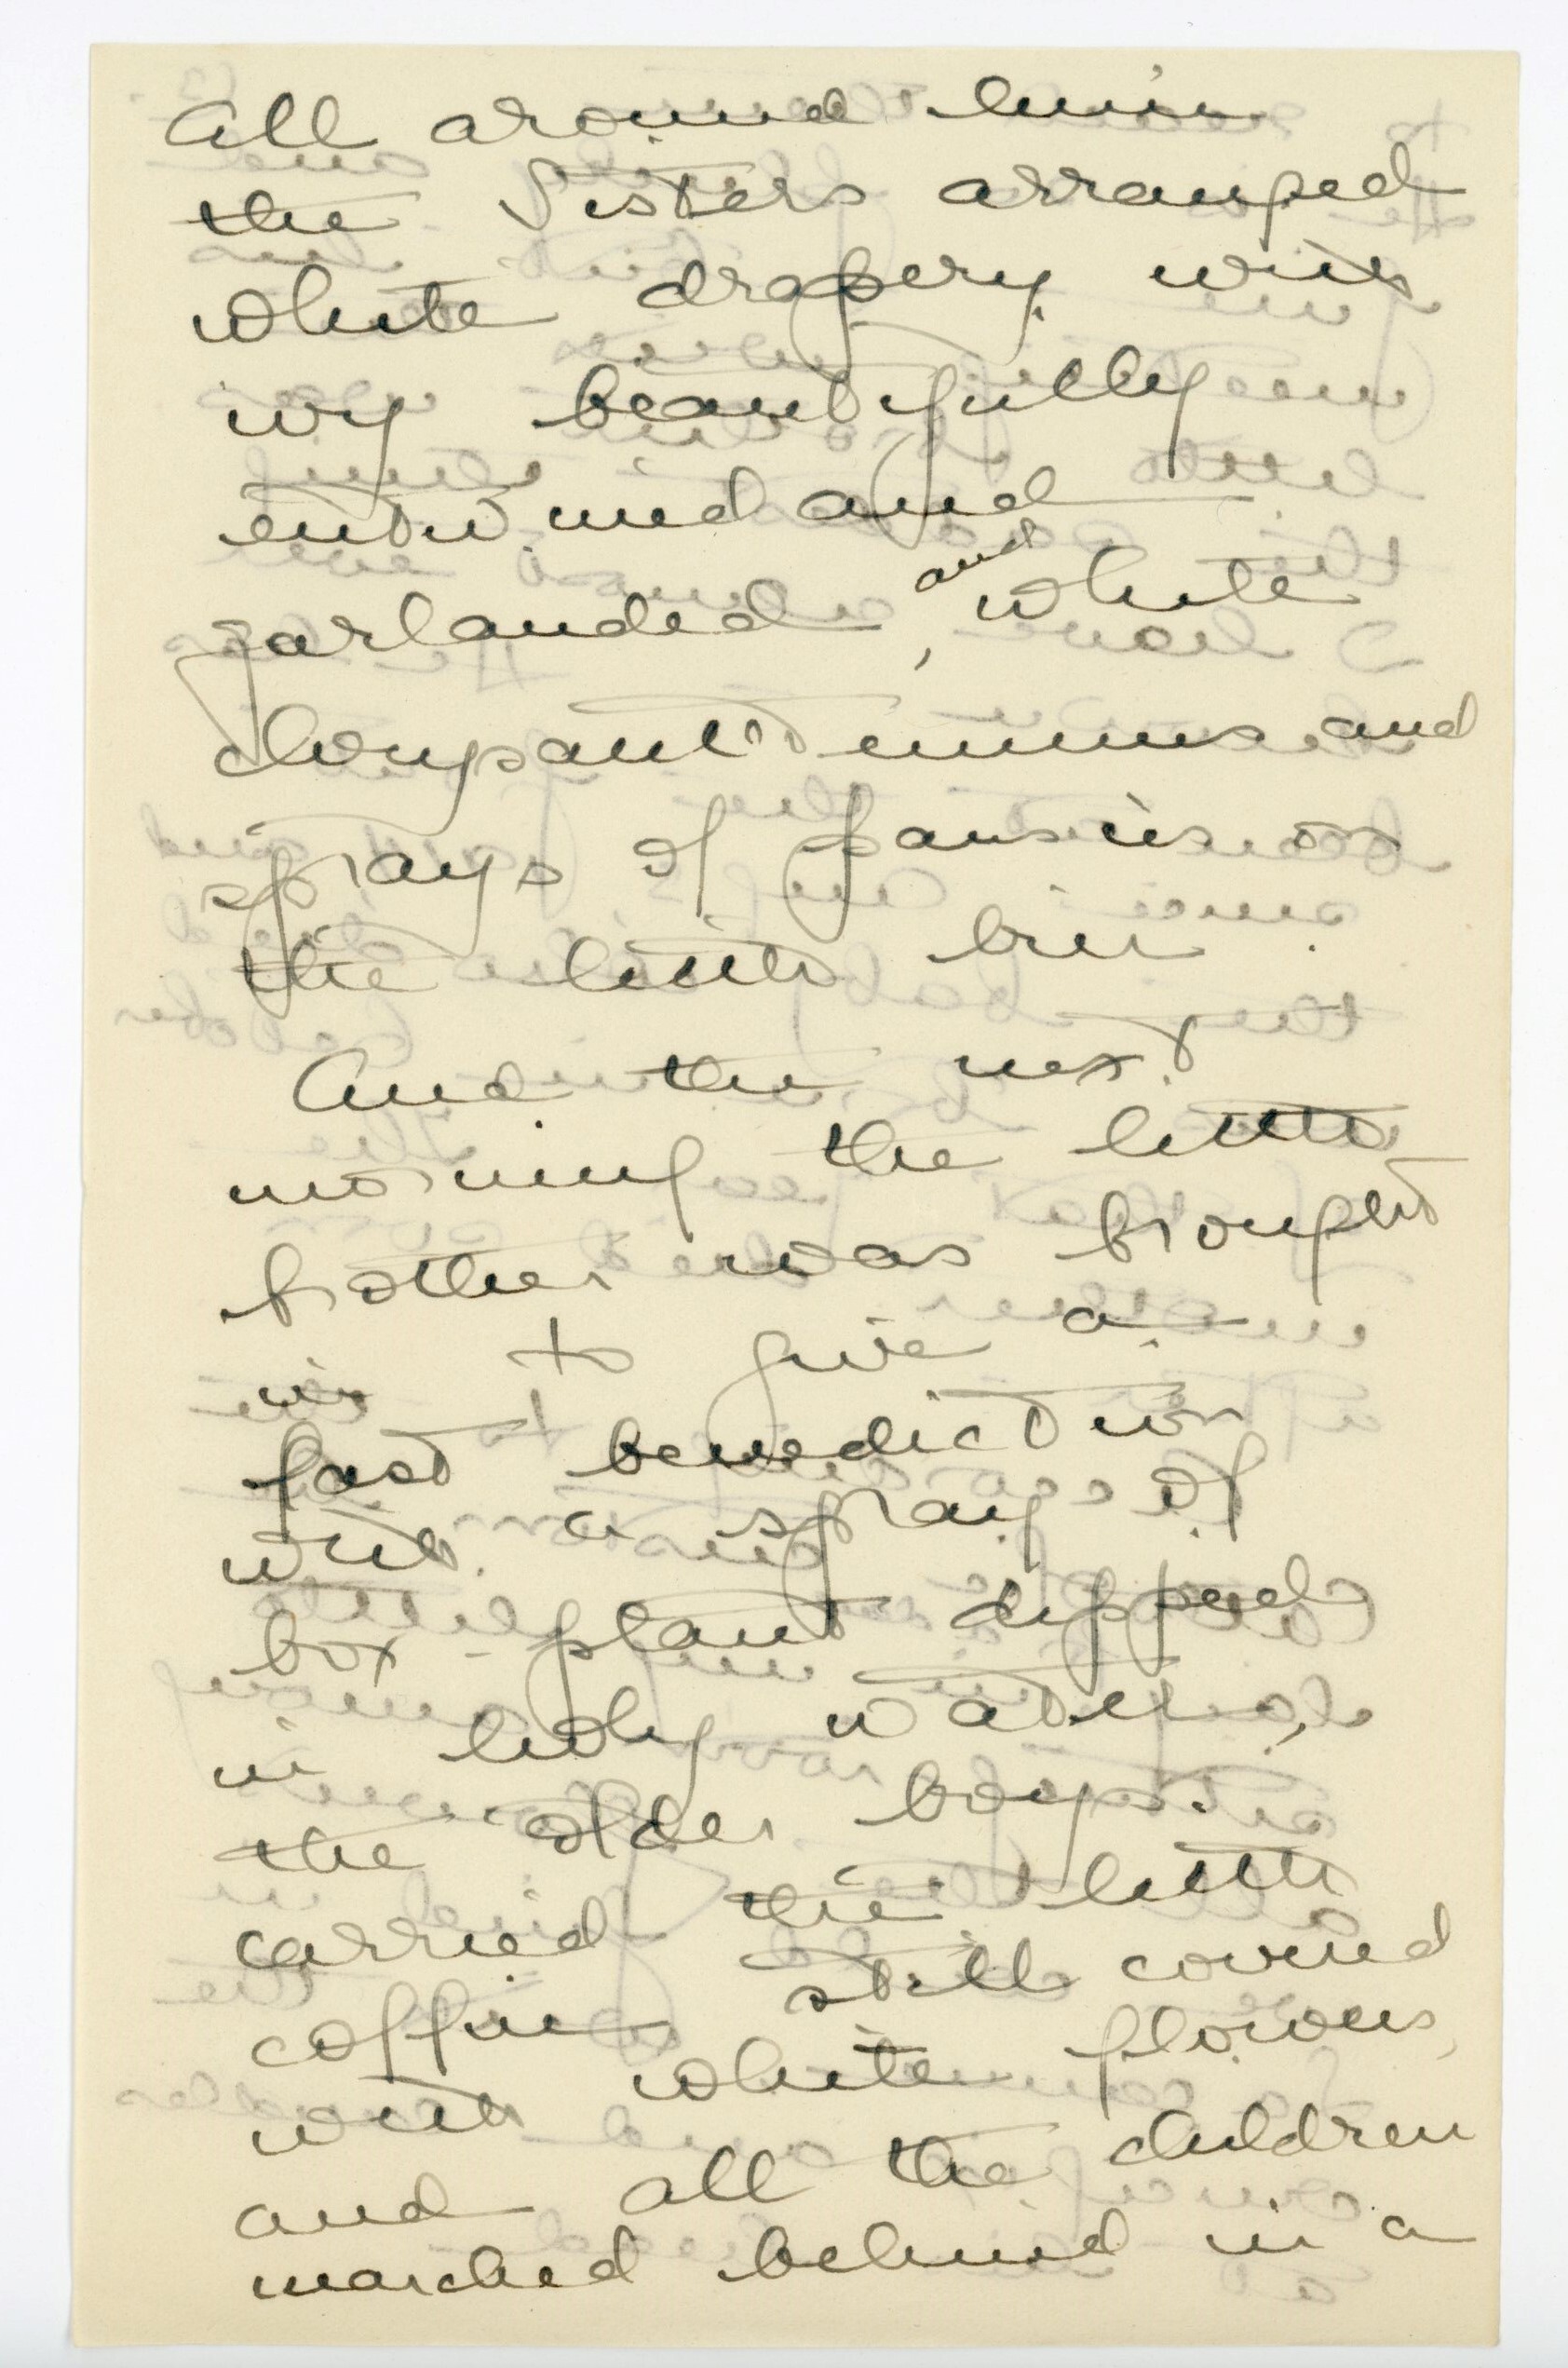 All around him
the Sisters arranged
white drapery with
ivy beautifully
entwined and
garlanded, and white
chrysanthemums and
sprays of pansies on
the little bier.
And the next
morning the little
brother was brought
in to give a
last benediction
with a spray of
box plant dipped
in holy water,
the older boys
carried the little
coffin still covered
with white flowers,
and all the children
marched behind in a